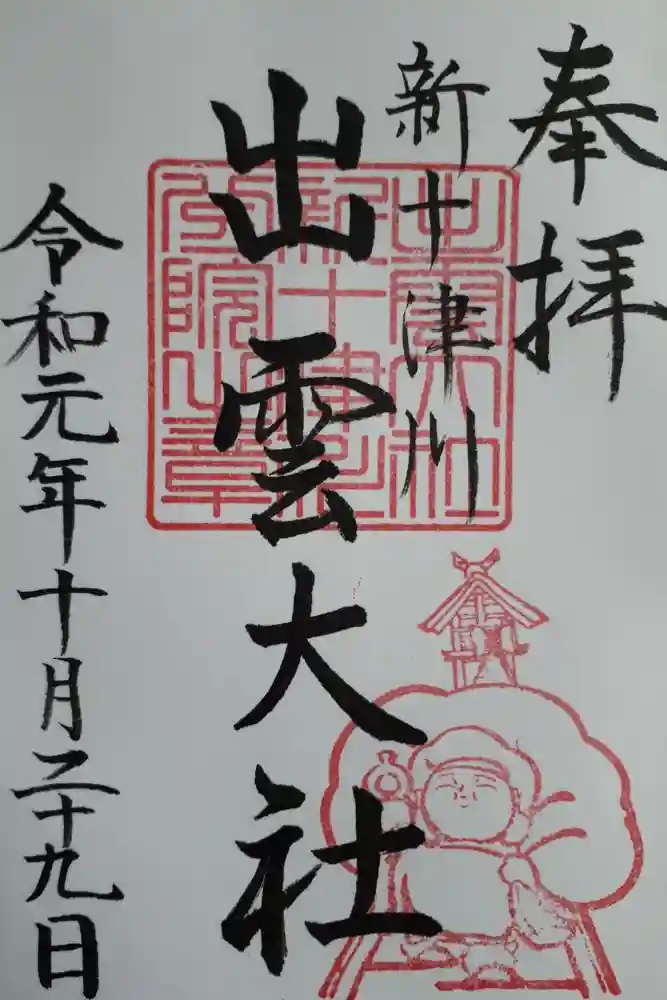 奉拝
新十津川
出雲大社
令和元年十月二十九日
出雲大社
新十津川
分院之章